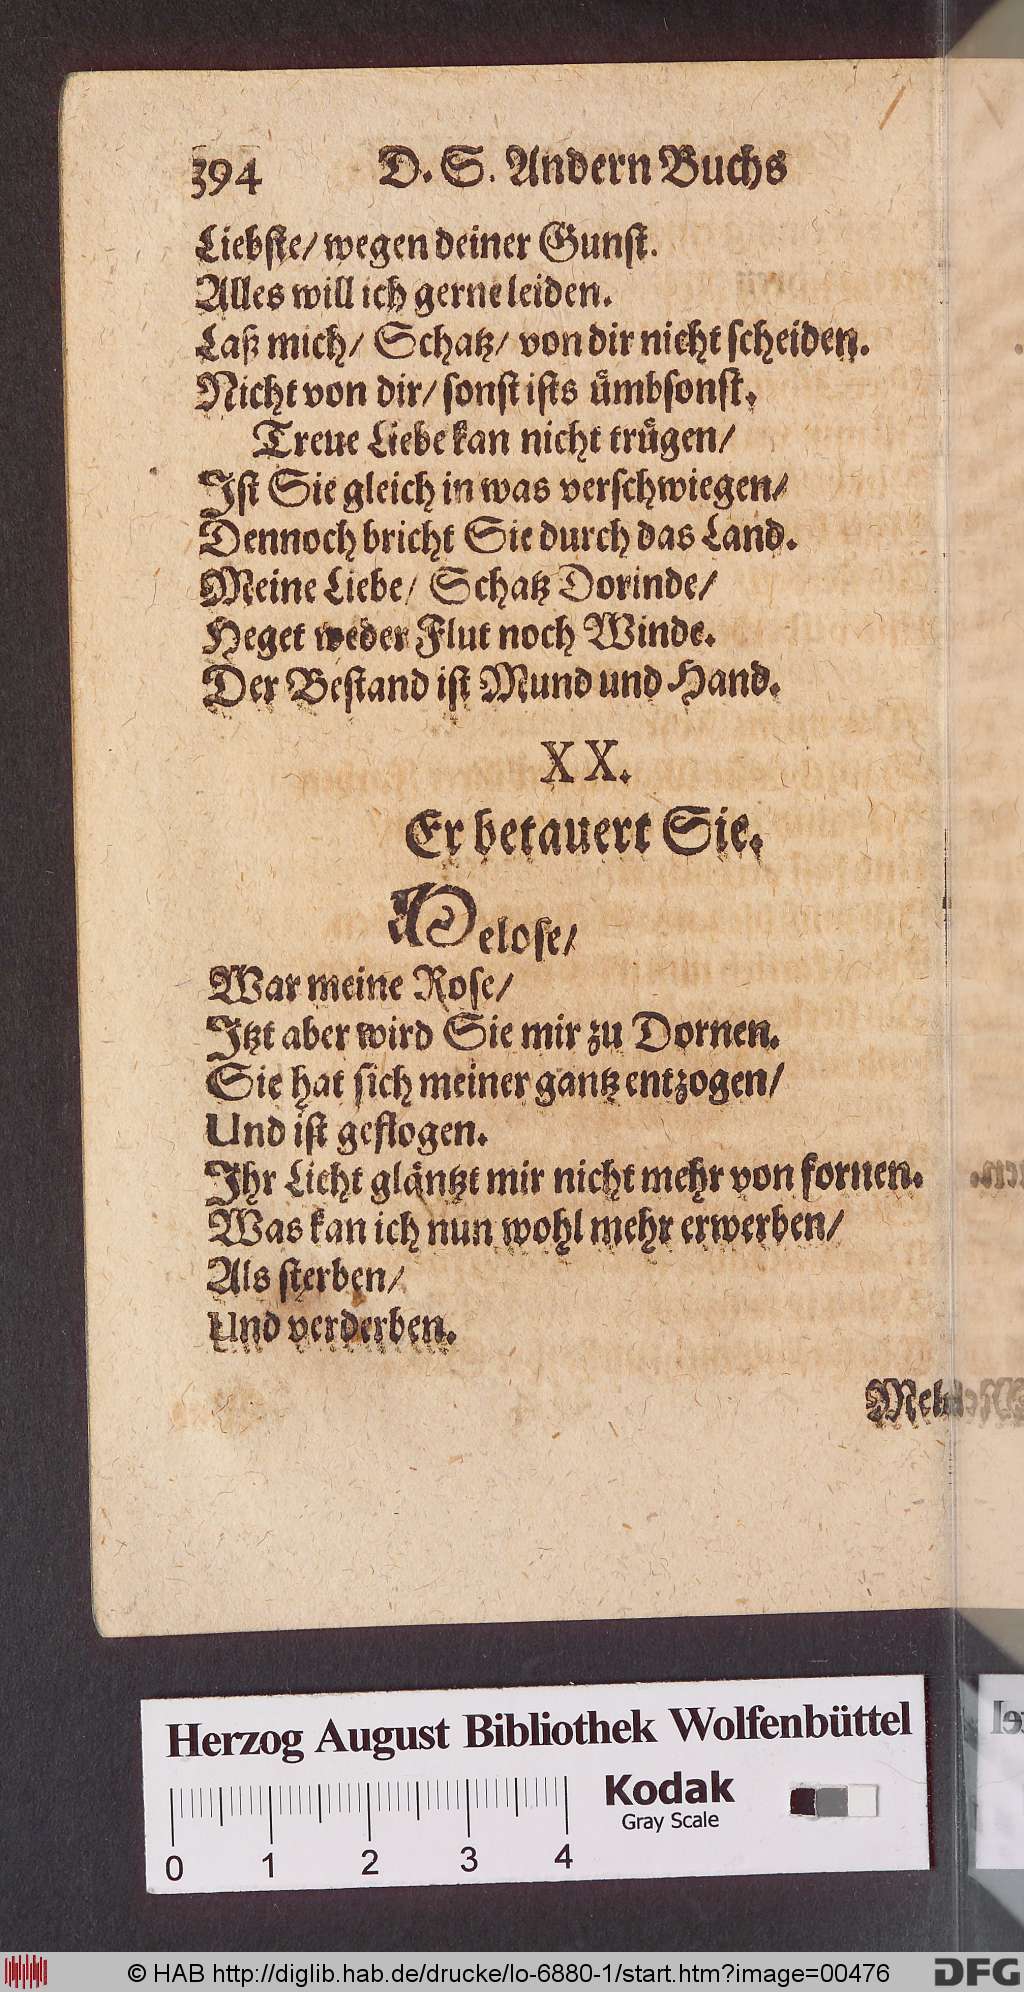 394 D. S. Andern Buchs
Liebste/ wegen deiner Gunst.
Alles will ich gerne leiden.
Laß mich/ Schatz/ von dir nicht scheiden.
Nicht von dir/ sonst ists ümbsonst.
Treue Liebe kan nicht trügen/
Ist Sie gleich in was verschwiegen/
Dennoch bricht Sie durch das Land.
Meine Liebe/ Schatz Dorinde/
Heget weder Flut noch Winde.
Der Bestand ist Mund und Hand.
XX.
Er betauert Sie.
ADelose/
War meine Rose/
Itzt aber wird Sie mir zu Dornen.
Sie hat sich meiner gantz entzogen/
Und ist geflogen.
Ihr Licht gläntzt mir nicht mehr von fornen.
Was kan ich nun wohl mehr erwerben/
Als sterben/
Und verderben.
Herzog August Bibliothek Wolfenbüttel
Kodak
Gray Scale
0 1 2 3 4
© HAB http://diglib.hab.de/drucke/lo-6880-1/start.htm?image=00476
DFG